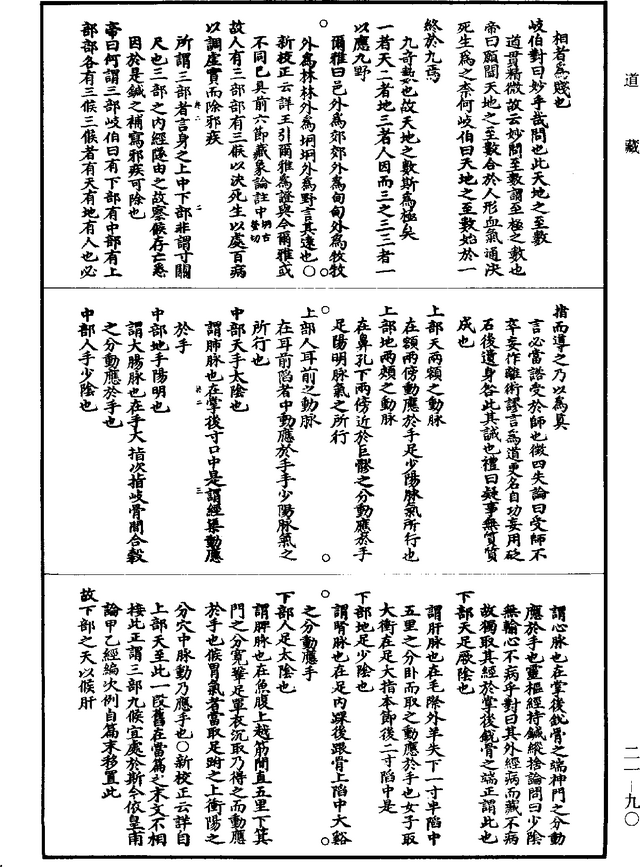 道藏
相者為賤也
岐伯對曰妙乎哉問也此天地之至數
道貫精微故云妙問至數謂至極之數也
帝曰願聞天地之至數合於人形血氣通決
死生為之奈何岐伯曰天地之至數始於一
終於九焉
九奇數也故天地之數斯為極矣
一者天二者地三者人因而三之三三者一
以應九野
爾雅曰邑外為郊郊外為甸甸外為牧牧
外為林林外為坰坰外為野言其遠也○
新校正云詳王引爾雅為證與今爾雅或
不同已具前六節藏象論註中
故人有三部部有三候以決死生以處百病
以調虛實而除邪疾
所謂三部者言身之上中下部非謂寸關
尺也三部之內經隧由之故察候存亡悉
因於是鍼之補寫邪疾可除也
帝曰何謂三部岐伯曰有下部有中部有上
部部各有三候三候者有天有地有人也必
指而導之乃以為真
言必當諮受於師也徵四失論曰受師不
卒妄作雜術謬言為道更名自功妄用砭
石後遺身咎此其誠也禮曰疑事無質質
成也
上部天兩額之動脉
在額兩傍動應於手足少陽脉氣所行也
上部地兩頰之動脉
在鼻孔下兩傍近於巨髎之分動應於手
足陽明脉氣之所行
上部人耳前之動脉
在耳前陷者中動應於手手少陽脉氣之
所行也
中部天手太陰也
謂肺脉也在掌後寸口中是謂經渠動應
於手
中部地手陽明也
謂大腸脉也在手大指次指岐骨間合谷
之分動應於手也
中部人手少陰也
謂心脉也在掌後銳骨之端神門之分動
應於手也靈樞經持鍼縱捨論問曰少陰
無輸心不病乎對曰其外經病而藏不病
故獨取其經於掌後銳骨之端正謂此也
下部天足厥陰也
謂肝脉也在毛際外羊矢下一寸半陷中
五里之分卧而取之動應於手也女子取
太衝在足大指本節後二寸陷中是
下部地足少陰也
謂腎脉也在足內踝後跟骨上陷中大谿
之分動應手
下部人足太陰也
謂脾脉也在魚腹上越筋間直五里下箕
門之分寬鞏足單衣沉取乃得之而動應
於手也候胃氣者當取足跗之上衝陽之
分穴中脉動乃應手也○新校正云詳自
上部天至此一段舊在當篇之末文不相
接此正謂三部九候宜處於斯今依皇甫
論甲乙經編次例自篇末移置此
故下部之天以候肝
二一—九〇